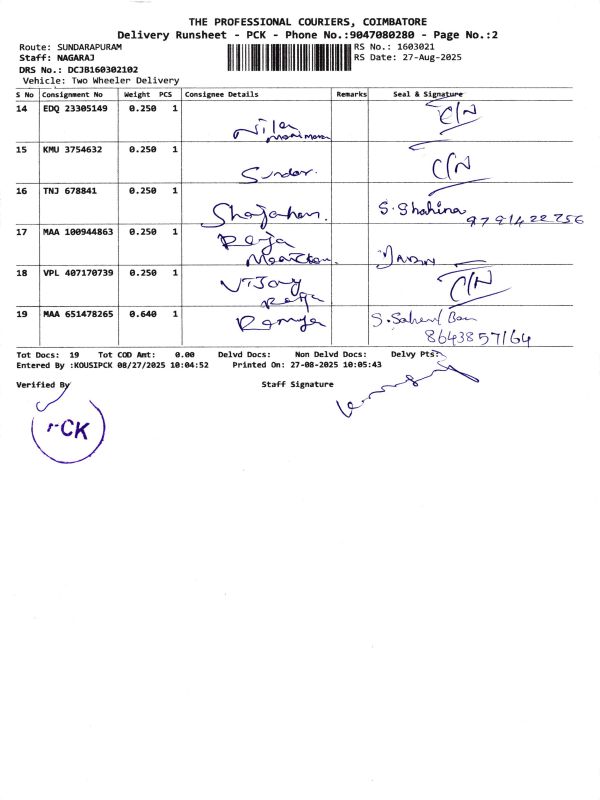 THE PROFESSIONAL COURIERS, COIMBATORE
Delivery Runsheet - PCK - Phone No.:9047080280 - Page No.:2
Route: SUNDARAPURAM RS No.: 1603021
Staff: NAGARAJ RS Date: 27-Aug-2025
DRS No.: DCJB160302102
Vehicle: Two Wheeler Delivery
S No Consignment No Weight PCS Consignee Details Remarks Seal & Signature
14 EDQ 23305149 0.250 1 C/N
15 KMU 3754632 0.250 1 Sundar. C/N
16 TNJ 678841 0.250 1 Shajahan. S. Shahina 9791422756
17 MAA 100944863 0.250 1 Raja
18 VPL 407170739 0.250 1 Vijay Raja C/N
19 MAA 651478265 0.640 1 Ramya S.
8643857164
Tot Docs: 19 Tot COD Amt: 0.00 Delvd Docs: Non Delvd Docs: Delvy Pts:
Entered By :KOUSIPCK 08/27/2025 10:04:52 Printed On: 27-08-2025 10:05:43
Verified By Staff Signature
PCK